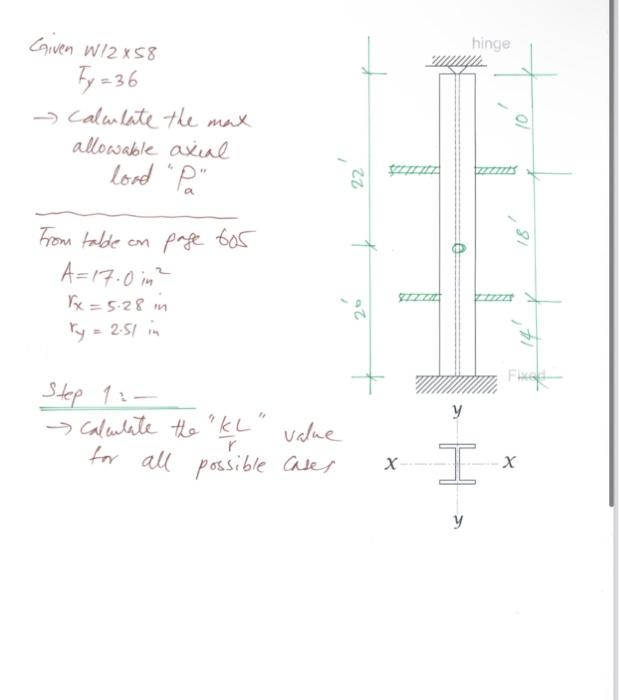 Given W12x58
Fy = 36
→ Calculate the max
allowable axial
load "Pa"
From table on page 605
A = 17.0 in²
rx = 5.28 in
ry = 2.51 in
Step 1:-
→ Calculate the "kL/r" value
for all possible cases
hinge
22'
20'
10'
18'
14'
Fixed
y
x
x
y